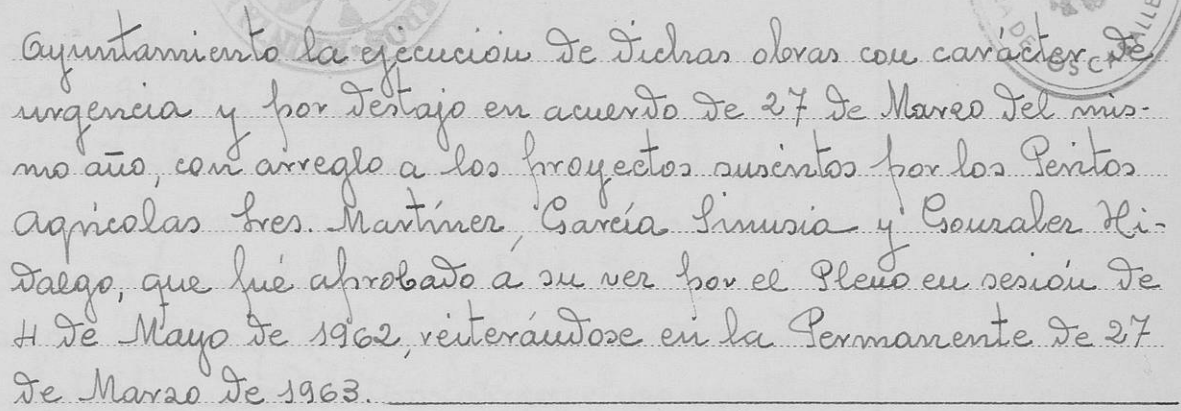 Ayuntamiento la ejecución de dichas obras con carácter de
urgencia y por destajo en acuerdo de 27 de Marzo del mis-
mo año, con arreglo a los proyectos suscritos por los Peritos
Agrícolas Sres. Martínez, García Sinusia y Gonzalez Hi-
dalgo, que fué aprobado a su vez por el Pleno en sesión de
4 de Mayo de 1962, reiterándose en la Permanente de 27
de Marzo de 1963.